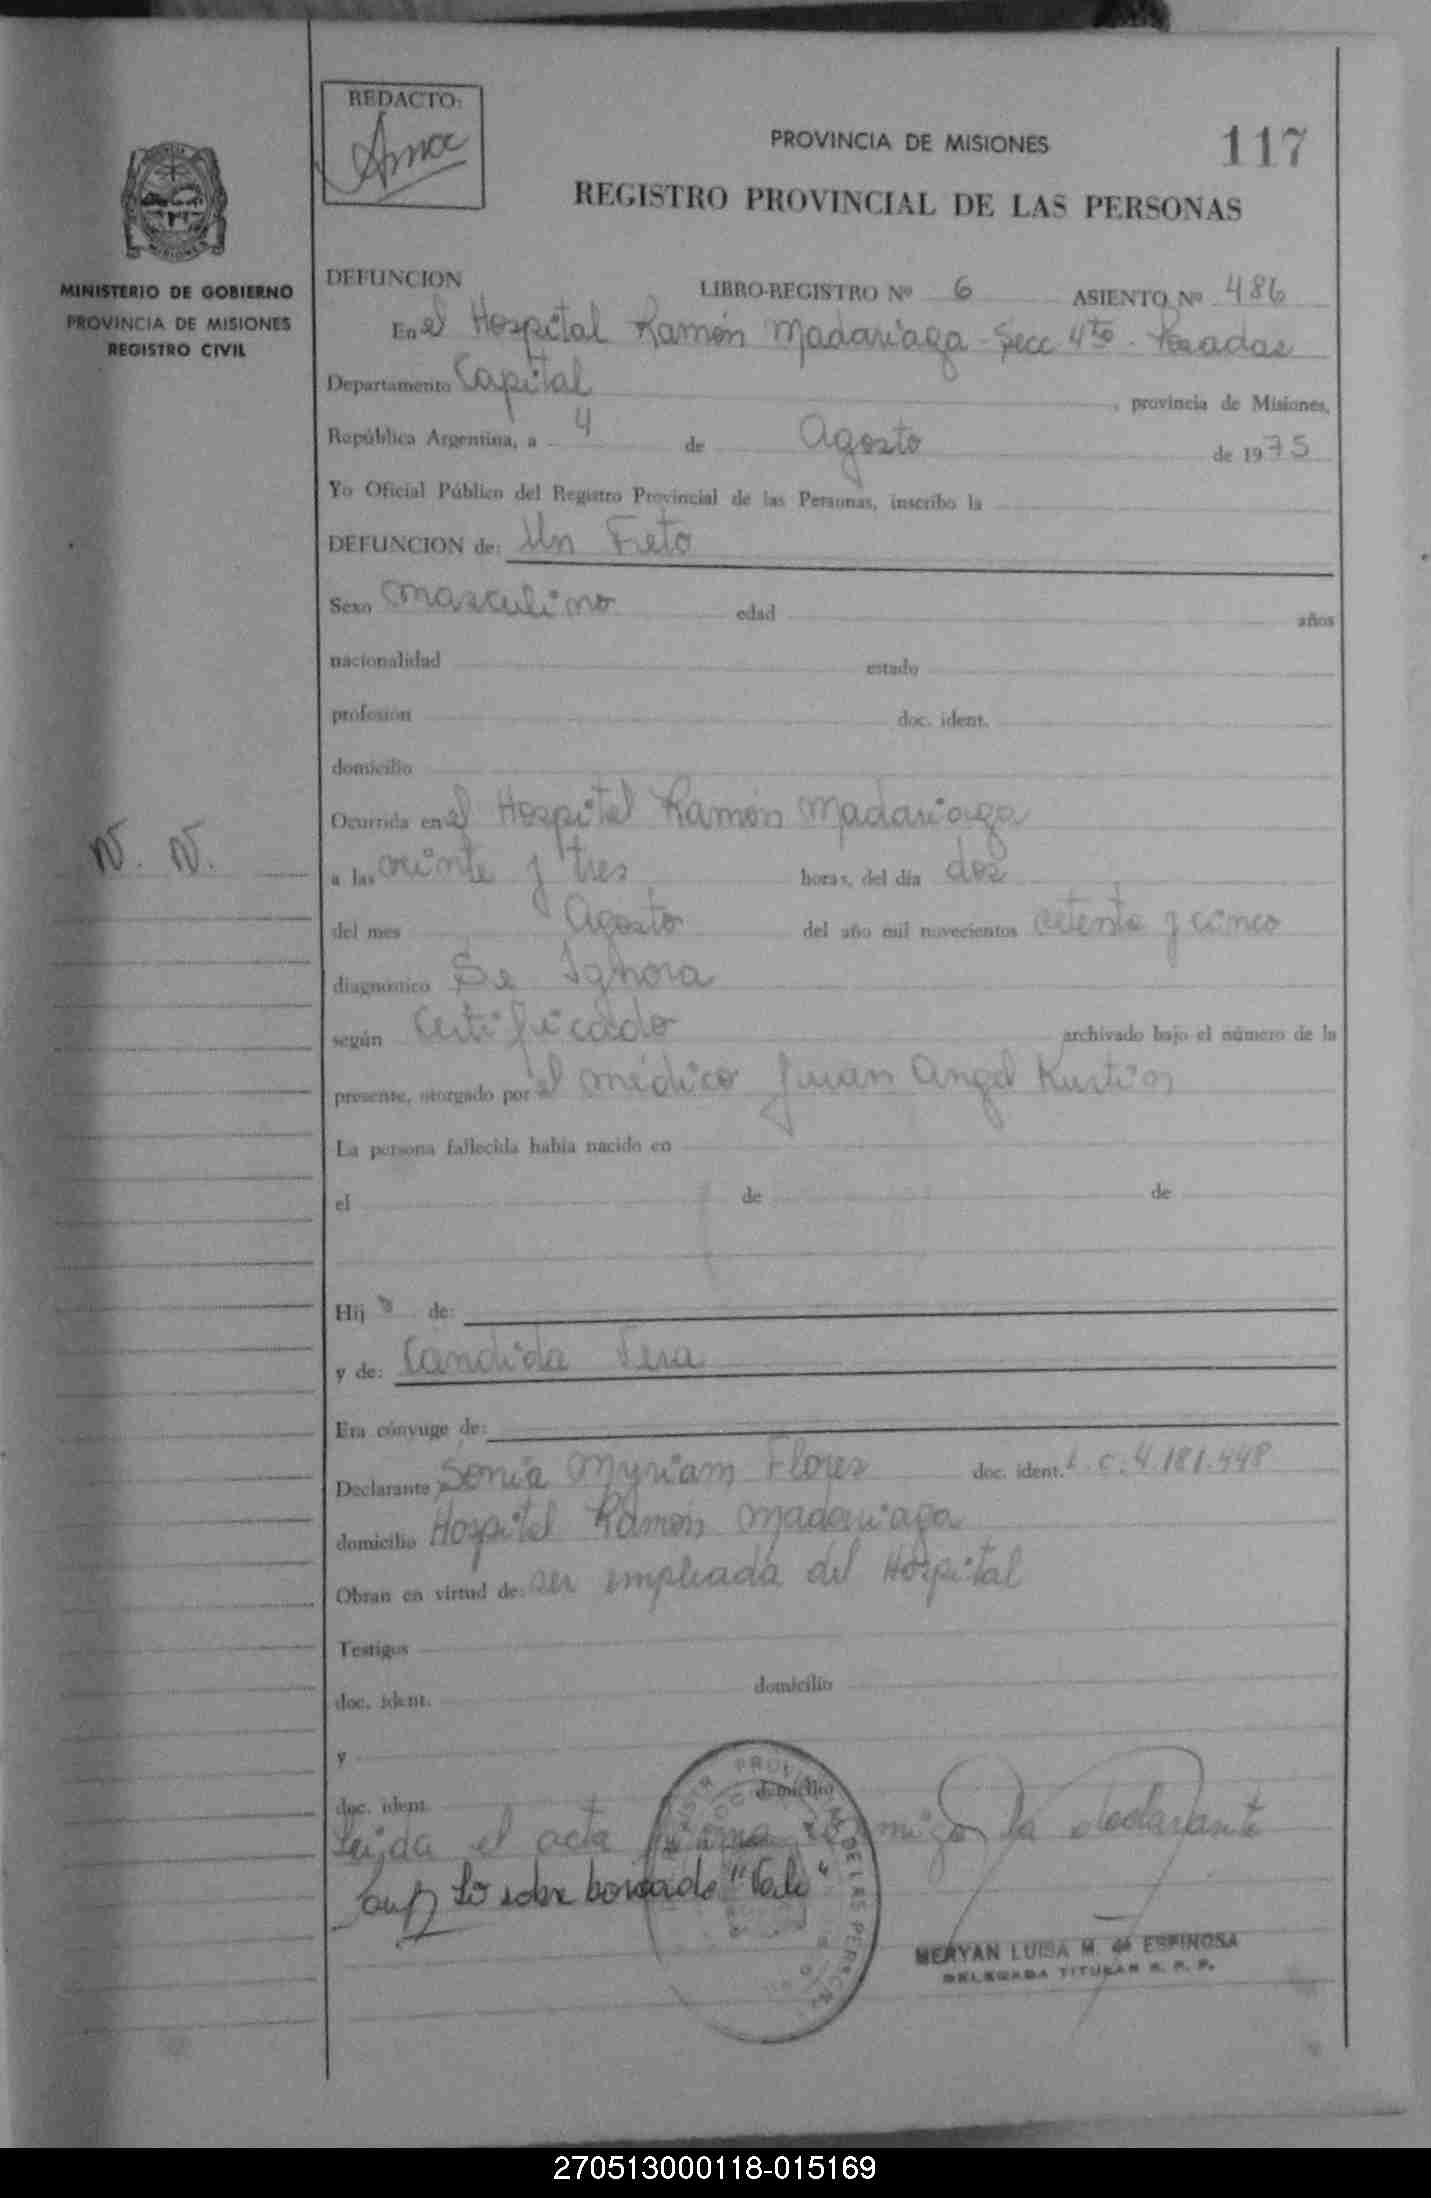 REDACTO:
PROVINCIA DE MISIONES
117
REGISTRO PROVINCIAL DE LAS PERSONAS
MISIONES
MINISTERIO DE GOBIERNO
PROVINCIA DE MISIONES
REGISTRO CIVIL
DEFUNCION LIBRO-REGISTRO Nº 6 ASIENTO Nº 486
En el Hospital Ramón Madariaga - Secc 4ta - Posadas
Departamento Capital, provincia de Misiones,
República Argentina, a 4 de Agosto de 1975
Yo Oficial Público del Registro Provincial de las Personas, inscribo la
DEFUNCION de: Un Feto
Sexo masculino edad años
nacionalidad estado
profesión doc. ident.
domicilio
Ocurrida en el Hospital Ramón Madariaga
N. N.
a las veinte y tres horas, del día dos
del mes Agosto del año mil novecientos setenta y cinco
diagnóstico Se Ignora
según Certificado archivado bajo el número de la
presente, otorgado por el médico Juan Angel
La persona fallecida había nacido en
el de de
Hij o de:
y de: Candida
Era cónyuge de:
Declarante Sonia Myriam Flores doc. ident. L.C. 4.181.448
domicilio Hospital Ramón Madariaga
Obran en virtud de: ser empleada del Hospital
Testigos
doc. ident. domicilio
y
doc. ident. domicilio
Leida el acta firma conmigo la declarante
sobre borrado "Vale"
MERYAN LUISA M. de ESPINOSA
DELEGADA TITULAR R. P. P.
270513000118-015169